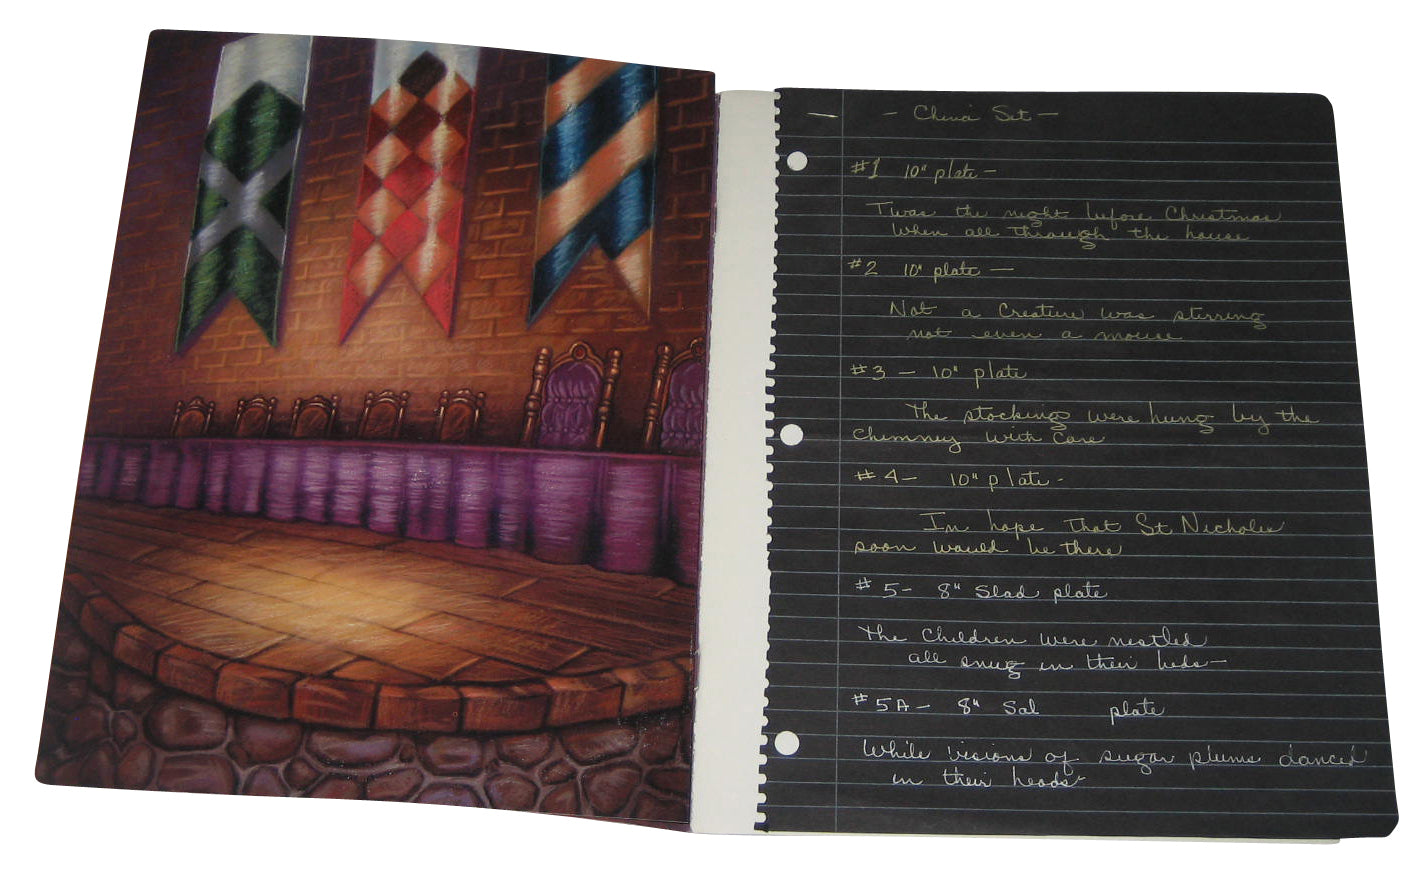 - China Set -
#1 10" plate -
Twas the night before Christmas
When all through the house
#2 10" plate -
Not a Creature was stirring
not even a mouse
#3 - 10" plate
The stockings were hung by the
chimney with Care
#4 - 10" plate -
In hope that St Nicholas
soon would be there
#5 - 8" Slad plate
The Children were nestled
all snug in their beds -
#5A - 8" Sal plate
While visions of sugar plums danced
in their heads